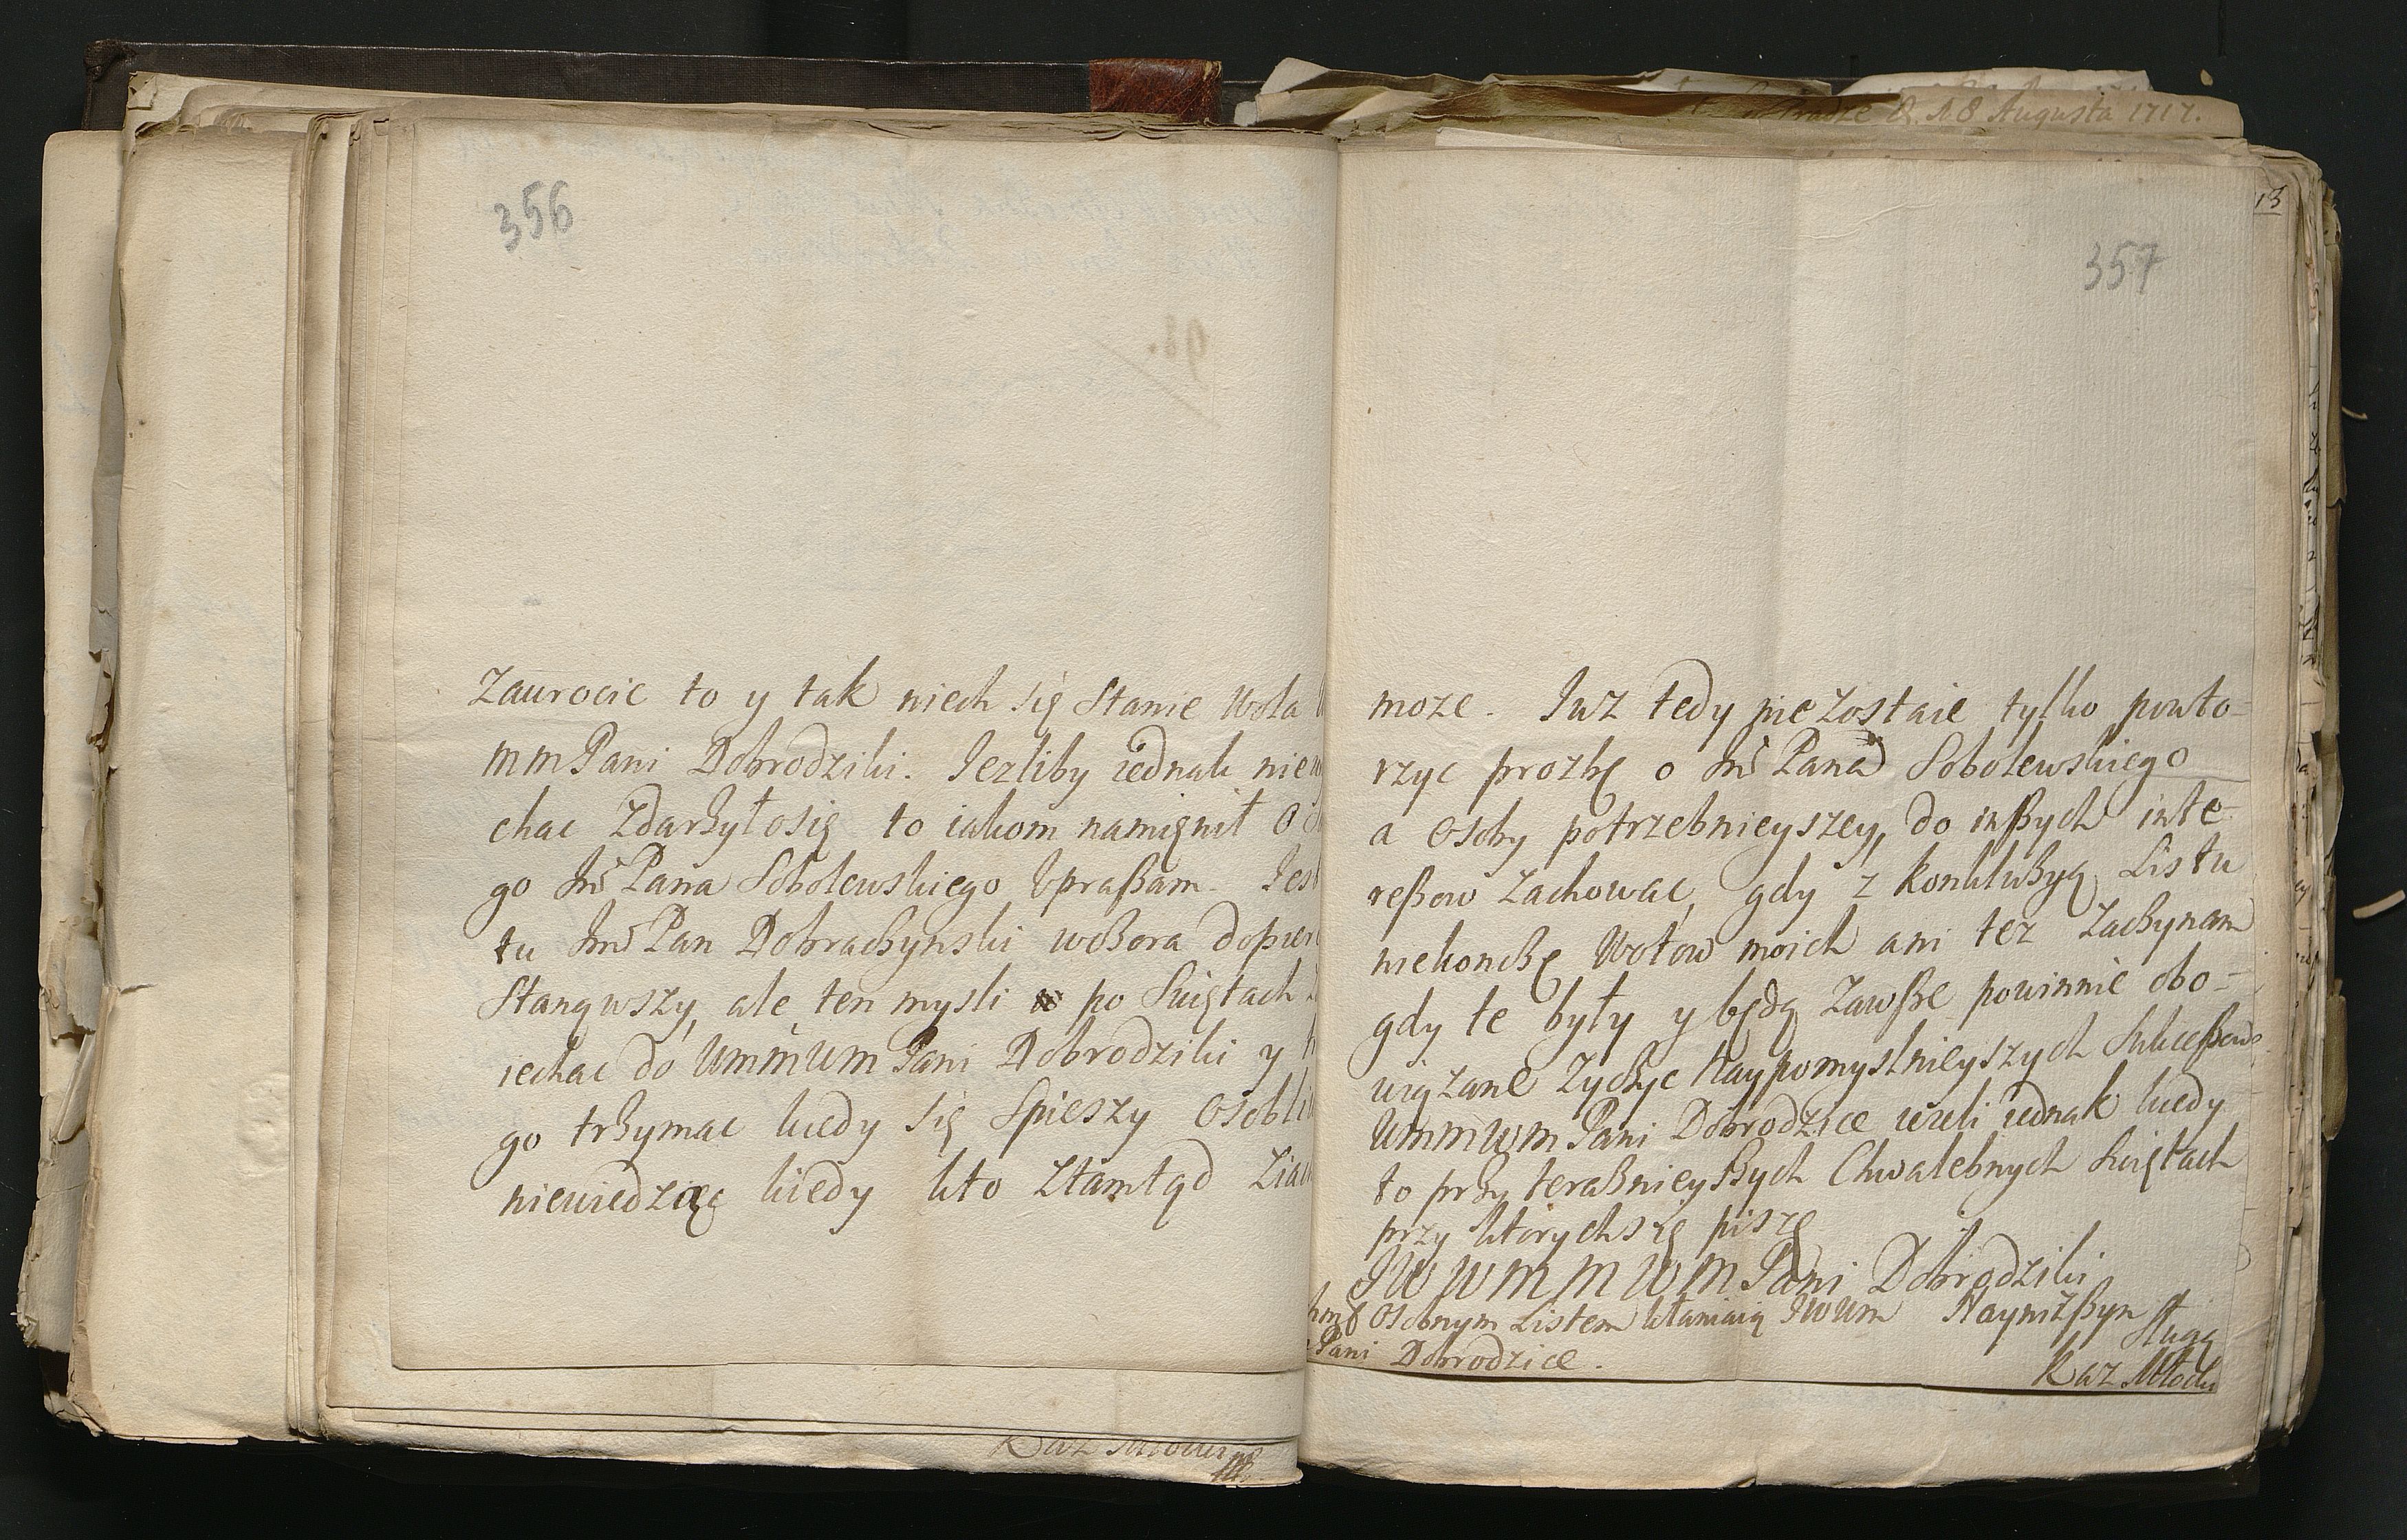 356
Zawrocic to y tak niech się Stanie Wola
mmPani Dobrodziki. Iezliby iednak nie
chac Zdarzyło się to iakom namięnił o
go Jmę Pana Sobolewskiego Upraßam. Iest
tu Jmę Pan Dobraczynski wczora dopier
Stanąwszy, ale ten mysli po Swiętach
iechac do WmmWm Pani Dobrodziki y
go trzymac kiedy się Spieszy Osobli
niewiedziec kiedy kto Ztamtąd Ziac
Kaz Młocki
Augusta 1717.
13
357
moze. Iuz tedy nie zostaie tylko powto-
rzyc prozbę o Jmę Pana Sobolewskiego
a Osoby potrzebnieyszey, do inßych inte-
reßow Zachowac, gdy z konkluzyą Listu
niekonczę Wotow moich ani tez Zaczynam
gdy te były y będą Zawsze powinnie obo-
wiązane Zyczyc Naypomyslnieyszych Sukceßow
WmmWm Pani Dobrodzice iezeli iednak kiedy
to przy teraznieyßych Chwalebnych Swiętach
przy ktorych się piszę
JWWmmWmPani Dobrodziki
Osobnym Listem kłaniaią JWWm Nayniżßym
Sługą
Pani Dobrodzice.
Kaz Młocki